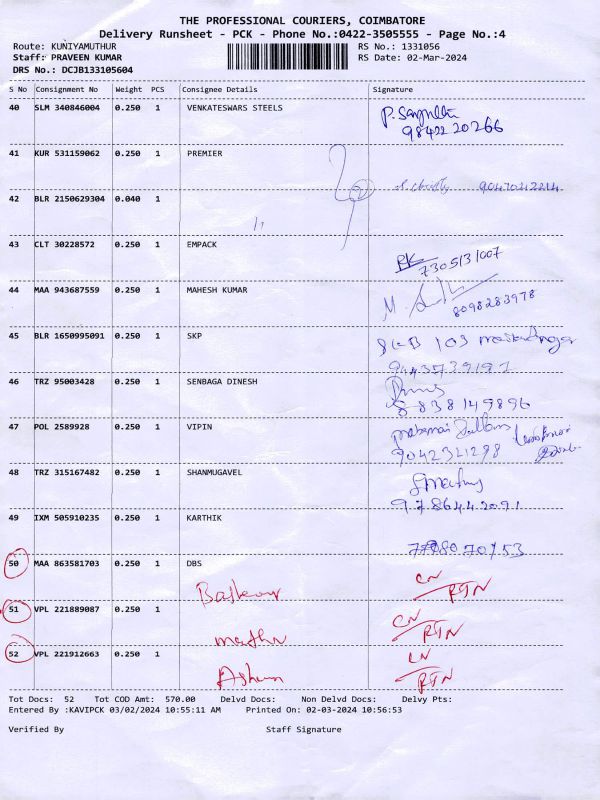 THE PROFESSIONAL COURIERS, COIMBATORE
Delivery Runsheet - PCK - Phone No.:0422-3505555 - Page No.:4
Route: KUNIYAMUTHUR RS No.: 1331056
Staff: PRAVEEN KUMAR RS Date: 02-Mar-2024
DRS No.: DCJB133105604
S No Consignment No Weight PCS Consignee Details Signature
40 SLM 340846004 0.250 1 VENKATESWARS STEELS
9842220266
41 KUR 531159062 0.250 1 PREMIER
42 BLR 2150629304 0.040 1
43 CLT 30228572 0.250 1 EMPACK
7305131007
44 MAA 943687559 0.250 1 MAHESH KUMAR
8098283978
45 BLR 1650995091 0.250 1 SKP
46 TRZ 95003428 0.250 1 SENBAGA DINESH
8838149896
47 POL 2589928 0.250 1 VIPIN
9042321298
48 TRZ 315167482 0.250 1 SHANMUGAVEL
9786442091
49 IXM 505910235 0.250 1 KARTHIK
50 MAA 863581703 0.250 1 DBS
CN
RTN
51 VPL 221889087 0.250 1
CN
RTN
52 VPL 221912663 0.250 1
RTN
Tot Docs: 52 Tot COD Amt: 570.00 Delvd Docs: Non Delvd Docs: Delvy Pts:
Entered By :KAVIPCK 03/02/2024 10:55:11 AM Printed On: 02-03-2024 10:56:53
Verified By Staff Signature